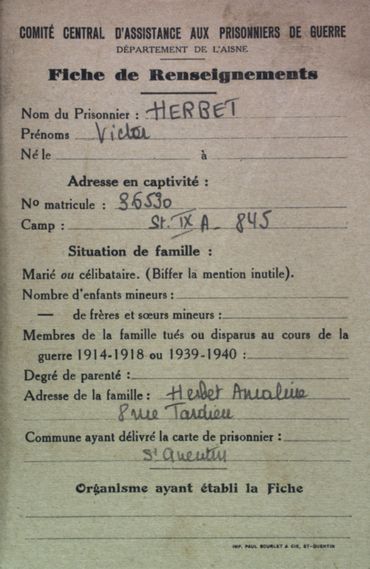 COMITÉ CENTRAL D'ASSISTANCE AUX PRISONNIERS DE GUERRE
DÉPARTEMENT DE L'AISNE
Fiche de Renseignements
Nom du Prisonnier : HERBET
Prénoms Victor
Né le à
Adresse en captivité :
No matricule : 36590
Camp : St. IX A - 845
Situation de famille :
Marié ou célibataire. (Biffer la mention inutile).
Nombre d'enfants mineurs :
— de frères et sœurs mineurs :
Membres de la famille tués ou disparus au cours de la
guerre 1914-1918 ou 1939-1940 :
Degré de parenté :
Adresse de la famille : Herbet
8 rue Tardieu
Commune ayant délivré la carte de prisonnier :
St Quentin
Organisme ayant établi la Fiche
IMP. PAUL BOURLET & CIE, ST-QUENTIN